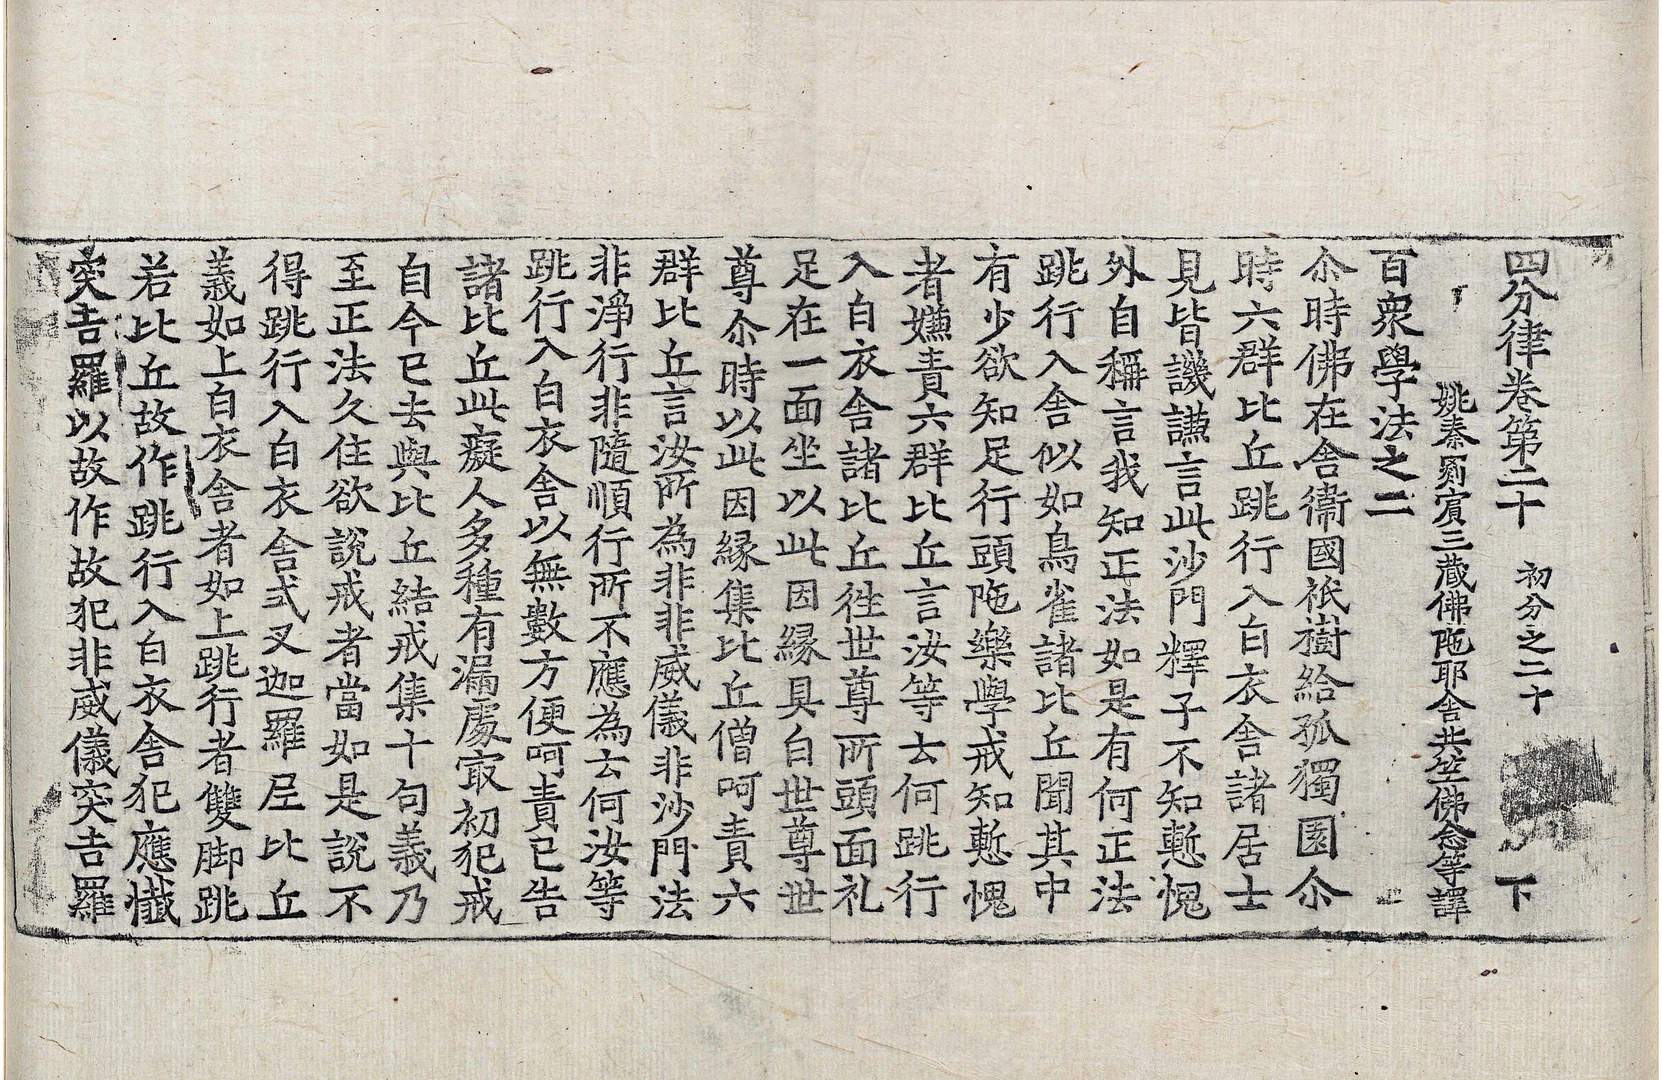 四分律卷第二十　初分之二十　下
姚秦罽賓三藏佛陁耶舍共竺佛念等譯
百衆學法之二
尒時佛在舍衞國祇樹給孤獨園尒
時六群比丘跳行入白衣舍諸居士
見皆譏謙言此沙門釋子不知慙愧
外自稱言我知正法如是有何正法
跳行入舍似如鳥雀諸比丘聞其中
有少欲知足行頭陁樂學戒知慙愧
者嫌責六群比丘言汝等云何跳行
入白衣舍諸比丘徃世尊所頭面礼
足在一面坐以此因縁具白世尊世
尊尒時以此因縁集比丘僧呵責六
群比丘言汝所為非非威儀非沙門法
非淨行非隨順行所不應為云何汝等
跳行入白衣舍以無數方便呵責已告
諸比丘此癡人多種有漏處㝡初犯戒
自今已去與比丘結戒集十句義乃
至正法久住欲說戒者當如是說不
得跳行入白衣舍式叉迦羅尼比丘
義如上白衣舍者如上跳行者雙脚跳
若比丘故作跳行入白衣舍犯應懺
突吉羅以故作故犯非威儀突吉羅